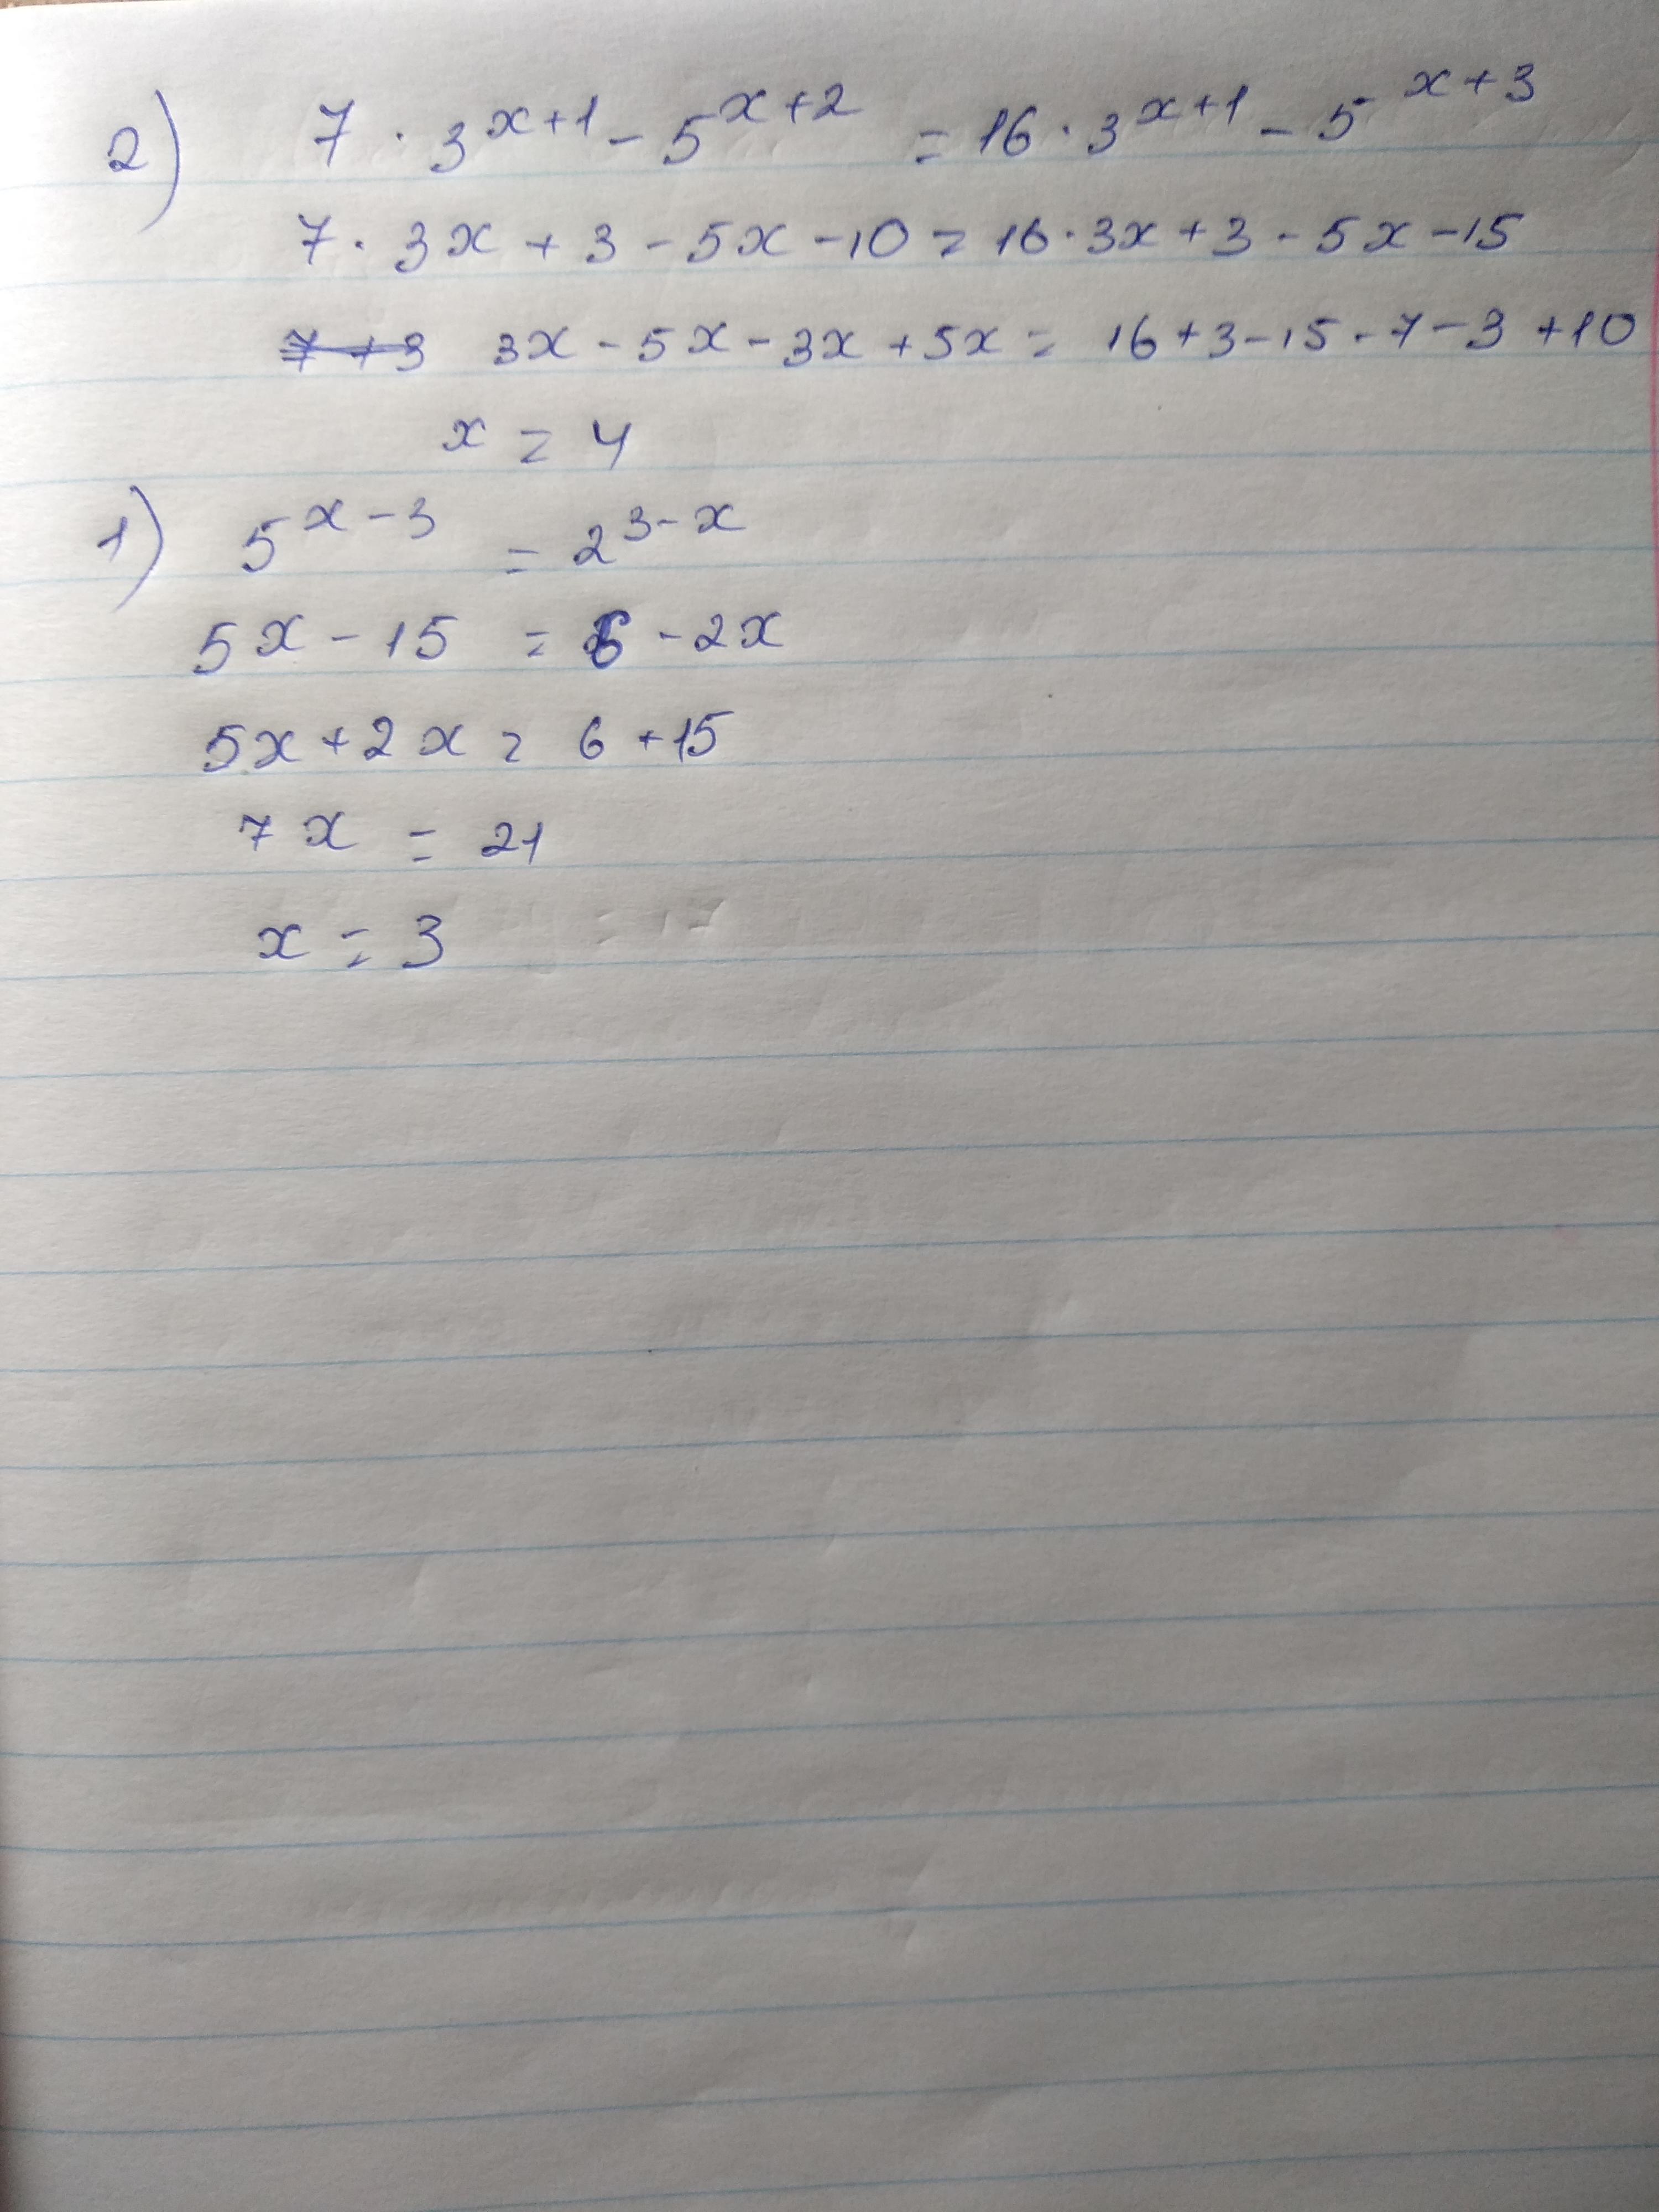 2) 7 · 3^{x+1} - 5^{x+2} = 16 · 3^{x+1} - 5^{x+3}
7 · 3x + 3 - 5x - 10 = 16 · 3x + 3 - 5x - 15
3x - 5x - 3x + 5x = 16 + 3 - 15 - 7 - 3 + 10
x = 4
1) 5^{x-3} = 2^{3-x}
5x - 15 = 6 - 2x
5x + 2x = 6 + 15
7x = 21
x = 3